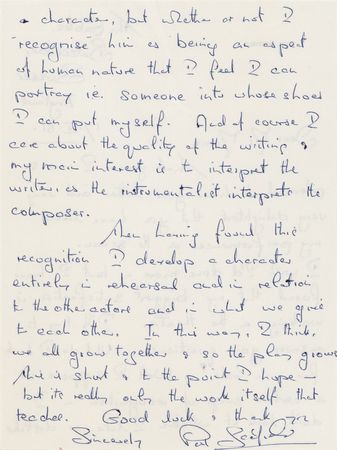 a character, but whether or not I
'recognise' him as being an aspect
of human nature that I feel I can
portray ie. someone into whose shoes
I can put myself. And of course I
care about the quality of the writing &
my main interest is to interpret the
writer, as the instrumentalist interprets the
composer.
Then having found this
recognition I develop a character
entirely in rehearsal and in relation
to the other actors and in what we give
to each other. In this way, I think,
we all grow together & so the play grows
This is short & to the point I hope –
but its really only the work itself that
teaches. Good luck & thank you
Sincerely Paul Scofield